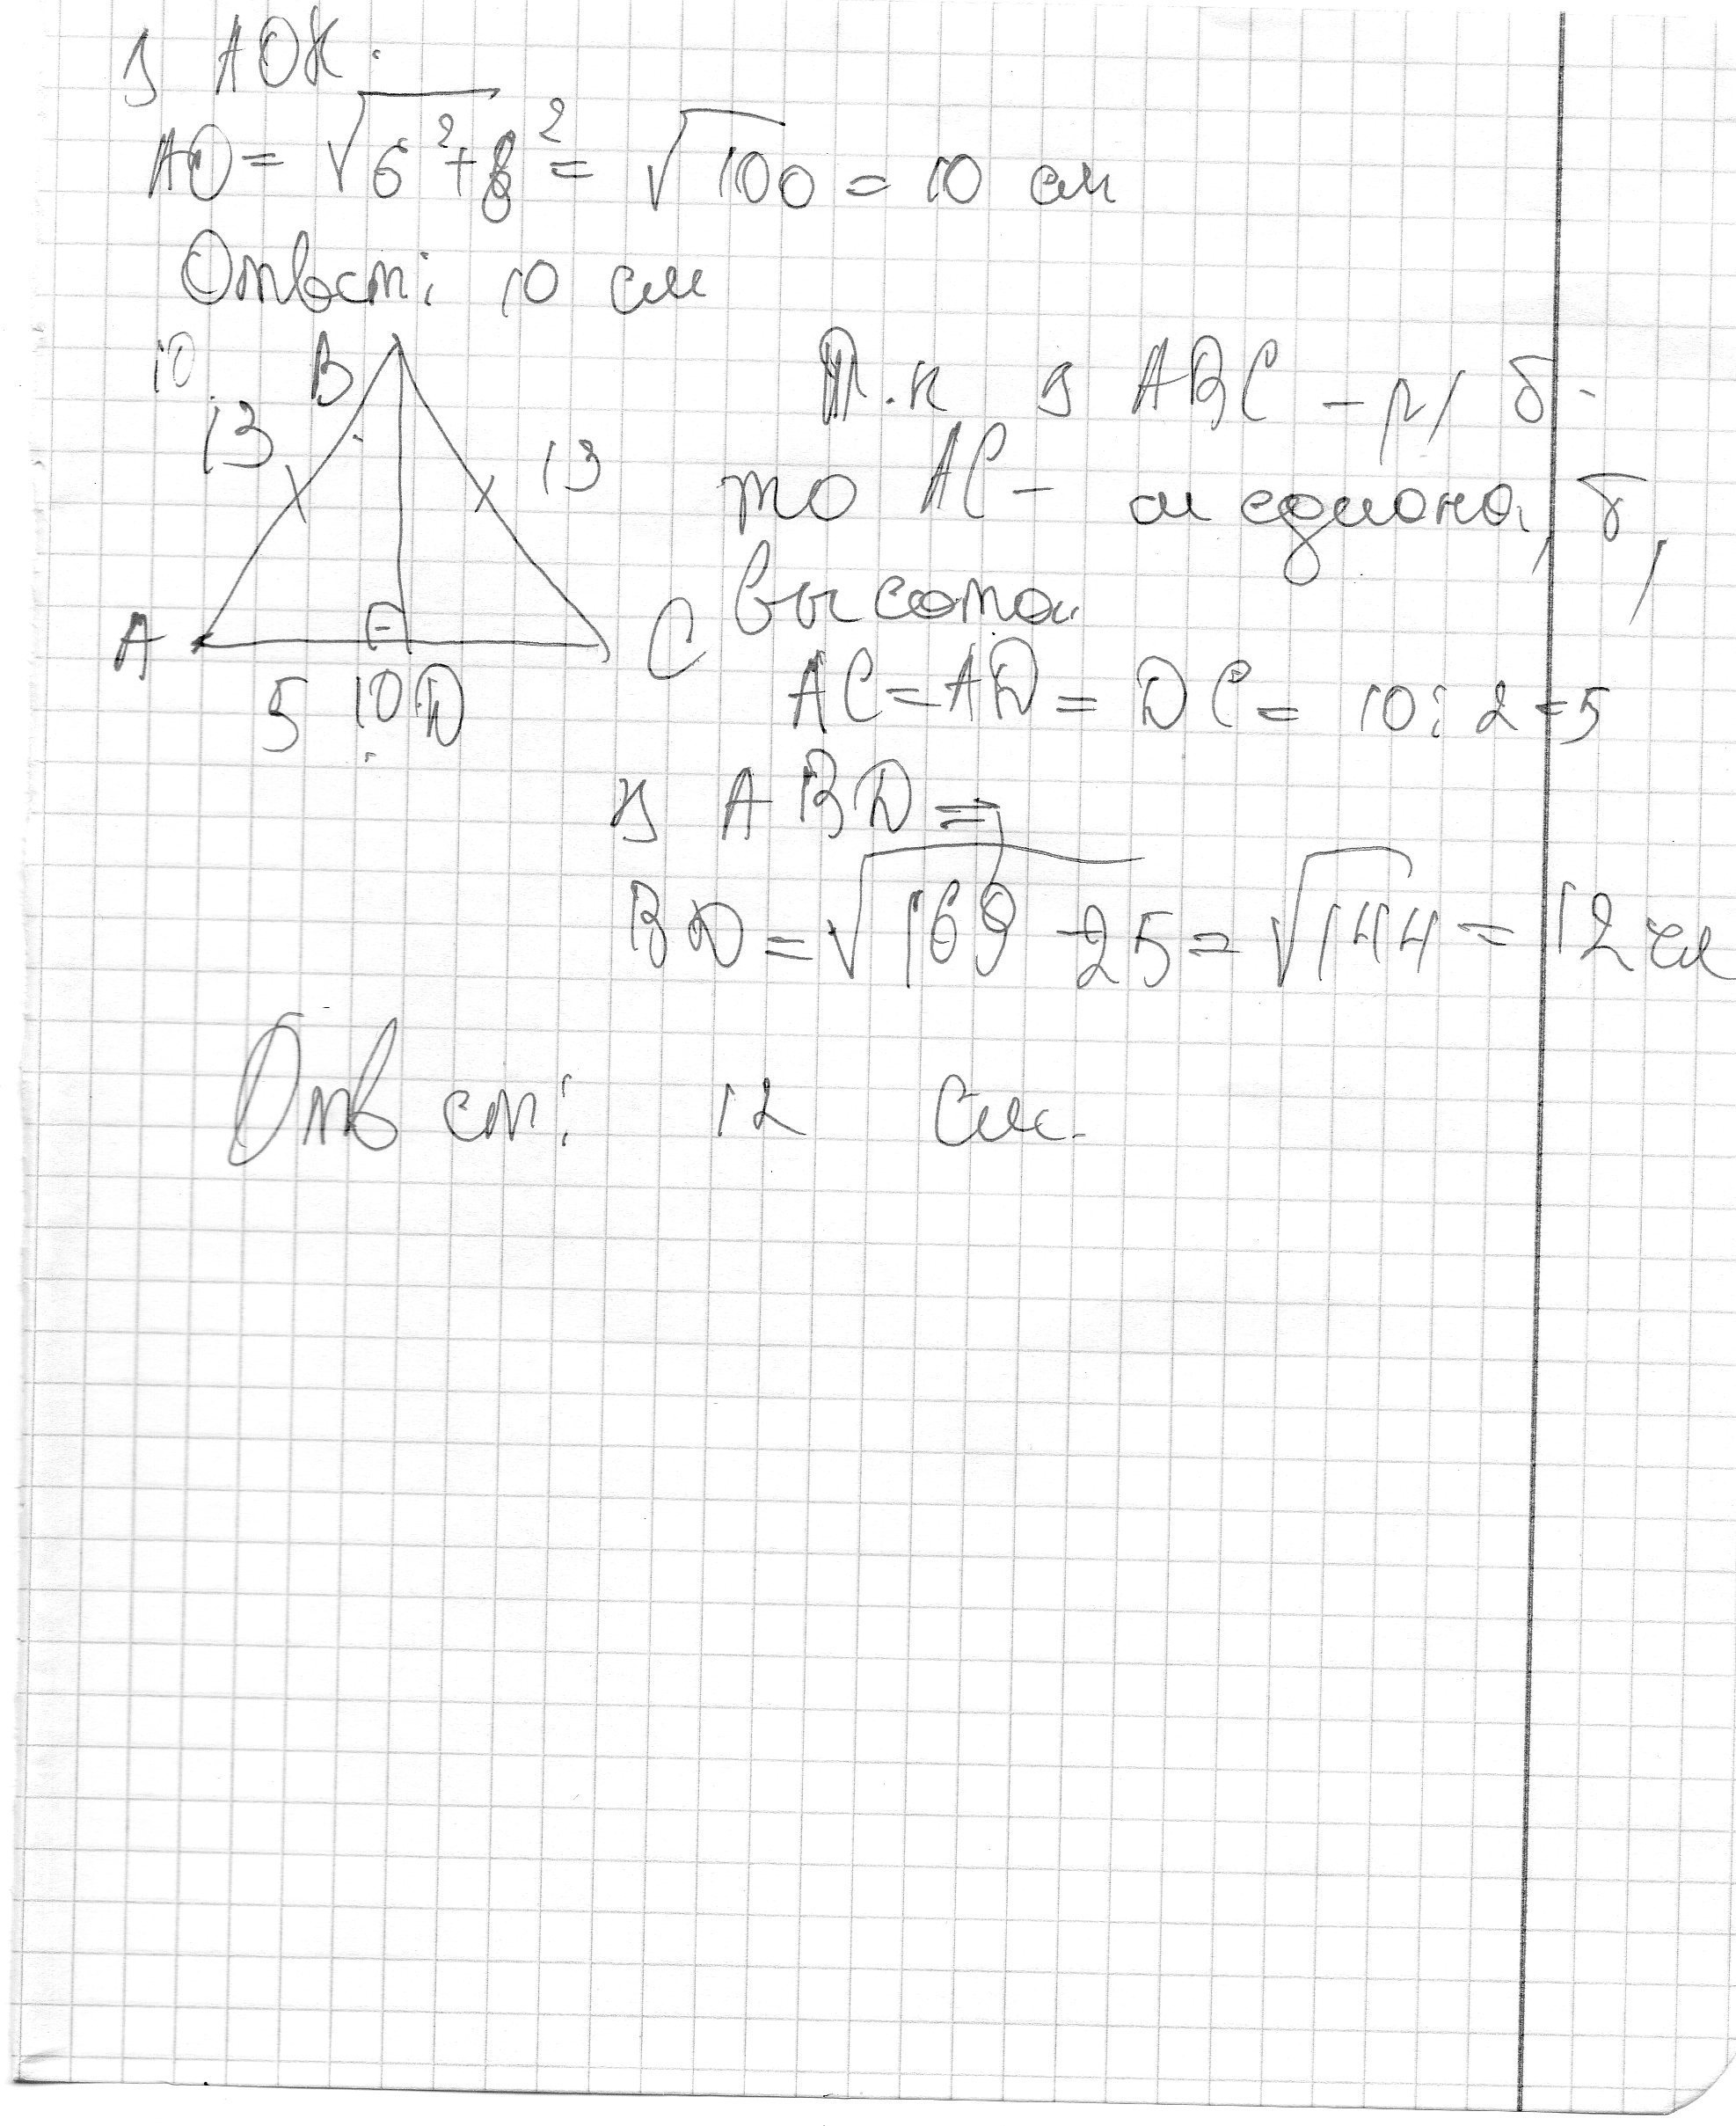 З АОК.
АО = √6²+8² = √100 = 10 см
Ответ: 10 см
10.
B
13
13
A
C
5 10 D
Т.к з ABC – р/б.
то AC – медиана, б,
высота.
AC = AD = DC = 10 : 2 = 5
з ABD ⇒
BD = √169 - 25 = √144 = 12 см
Ответ: 12 см.